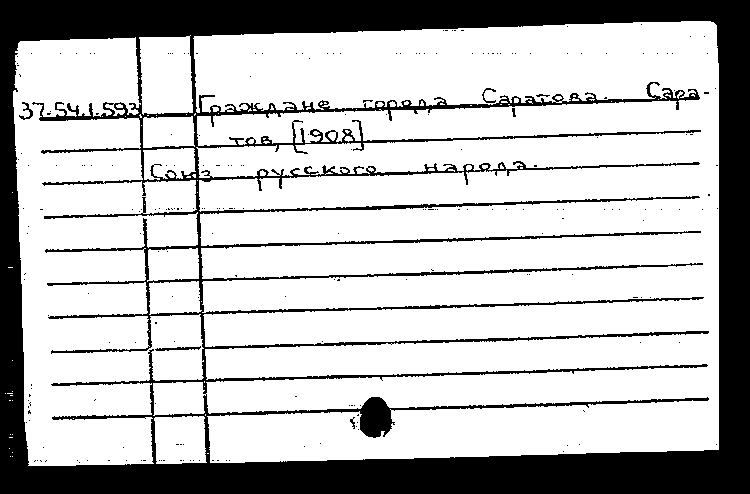 37.54.1.593 Граждане города Саратова. Сара-
тов, [1908]
Союз русского народа.